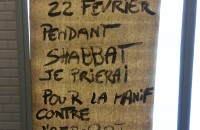 22 FÉVRIER
PENDANT
SHABBAT
JE PRIERAI
POUR LA MANIF
CONTRE